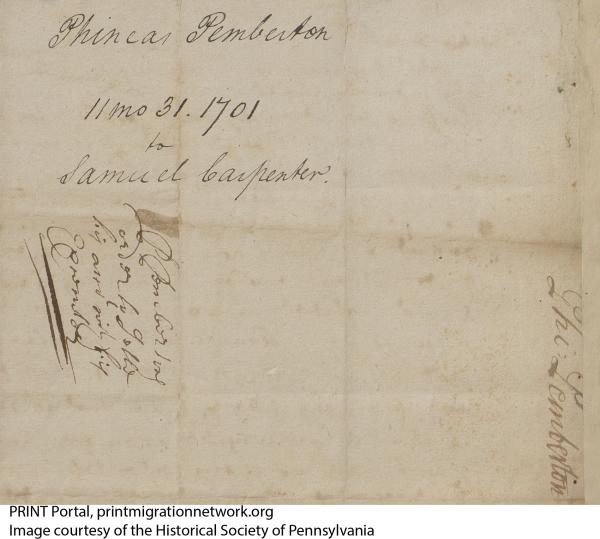 Phineas Pemberton
11 mo 31. 1701
to
Samuel Carpenter.
P Pemberton
order to settle
his acct with his
Phi: Pemberton
PRINT Portal, printmigrationnetwork.org
Image courtesy of the Historical Society of Pennsylvania